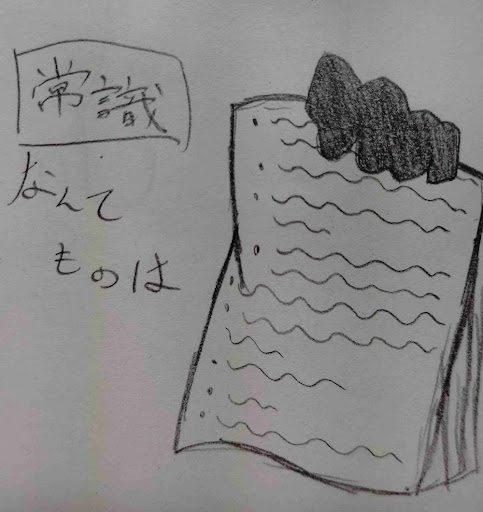 常識
なんて
ものは